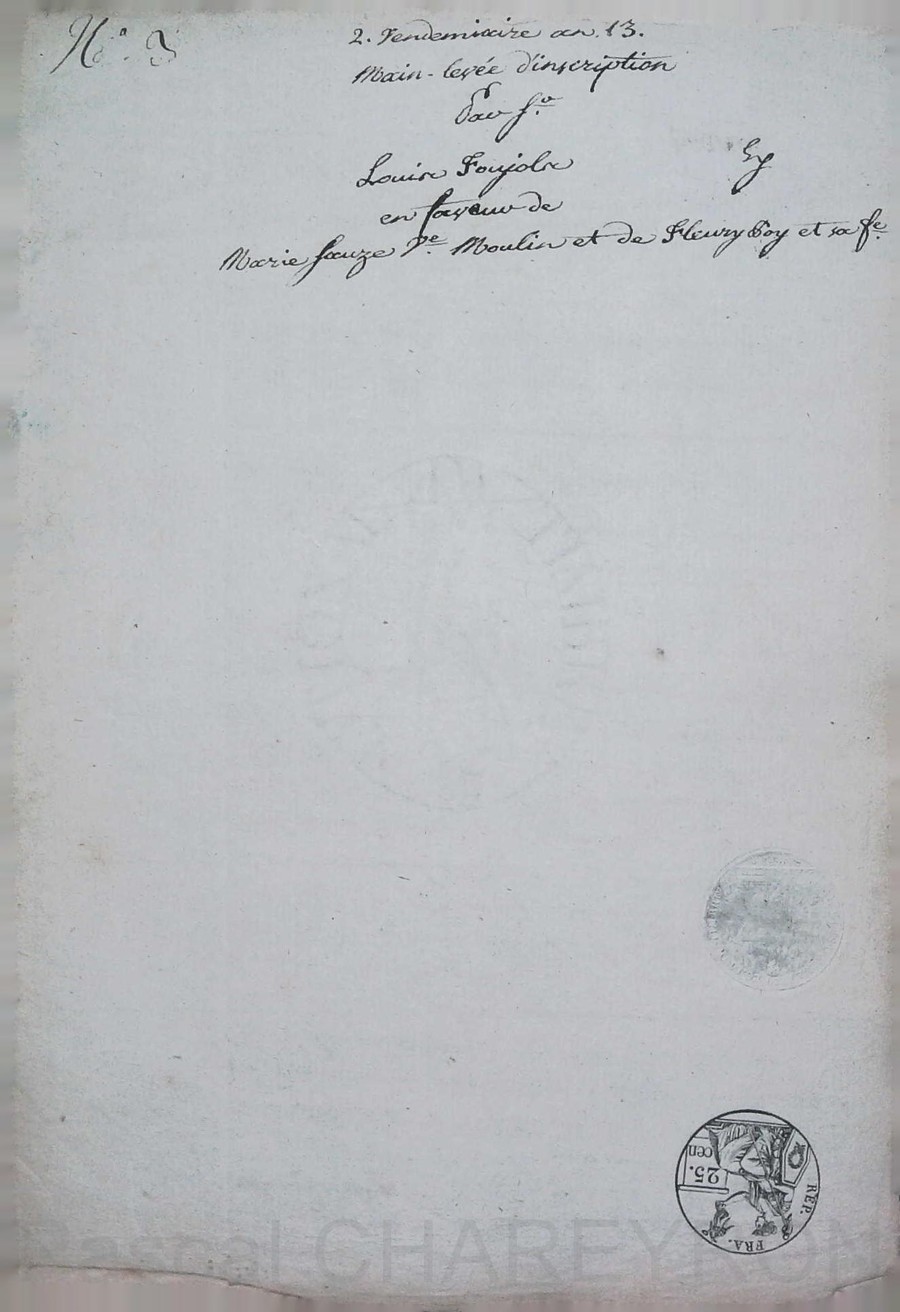 N.° 3
2. Vendemiaire an. 13.
Main-levée d'inscription
Par s.r
Louise Foujols
en faveur de
Marie Sauze V.e Moulin et de Fleury Boy et sa f.e
25.
cen
REP.
FRA.
Pascal CHAREYRON